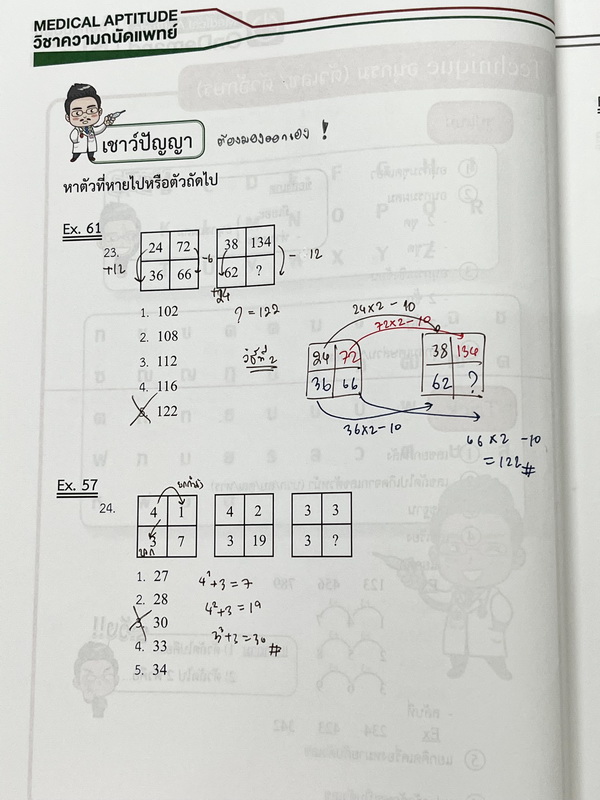 MEDICAL APTITUDE
วิชาความถนัดแพทย์
เชาว์ปัญญา ต้องมองออกเอง !
หาตัวที่หายไปหรือตัวถัดไป
Ex. 61
23.
24 72
36 66
+12
-6
38 134
62 ?
+24
- 12
1. 102
2. 108
3. 112
4. 116
5. 122
? = 122
วิธีที่ 2
24x2 - 10
72x2 - 10
24 72
36 66
38 134
62 ?
36x2 - 10
66 x 2 - 10
= 122 #
Ex. 57
24.
4 1
3 7
4 2
3 19
3 3
3 ?
1. 27
2. 28
3. 30
4. 33
5. 34
4¹+3 = 7
4²+3 = 19
3³+3 = 30 #